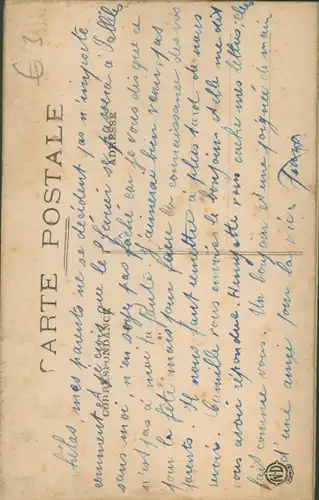 € 3
CARTE POSTALE
CORRESPONDANCE
ADRESSE
hélas, mes parents ne se décident pas n'importe
comment et je crois que le février se passera à
sans moi n'en soyez pas fâché car je vous dis que ce
n'est pas à moi la faute j'aimerai bien venir, pas
pour la fête mais pour faire la connaissance de vos
parents. Il nous faut remettre à plus tard de nous
revoir. Camille vous envoie le bonjour et elle me dit
vous avoir répondue. vous cache mes lettres, elle
fait comme vous. Un bonjour et une poignée de main
d'une amie pour la vie.
ND